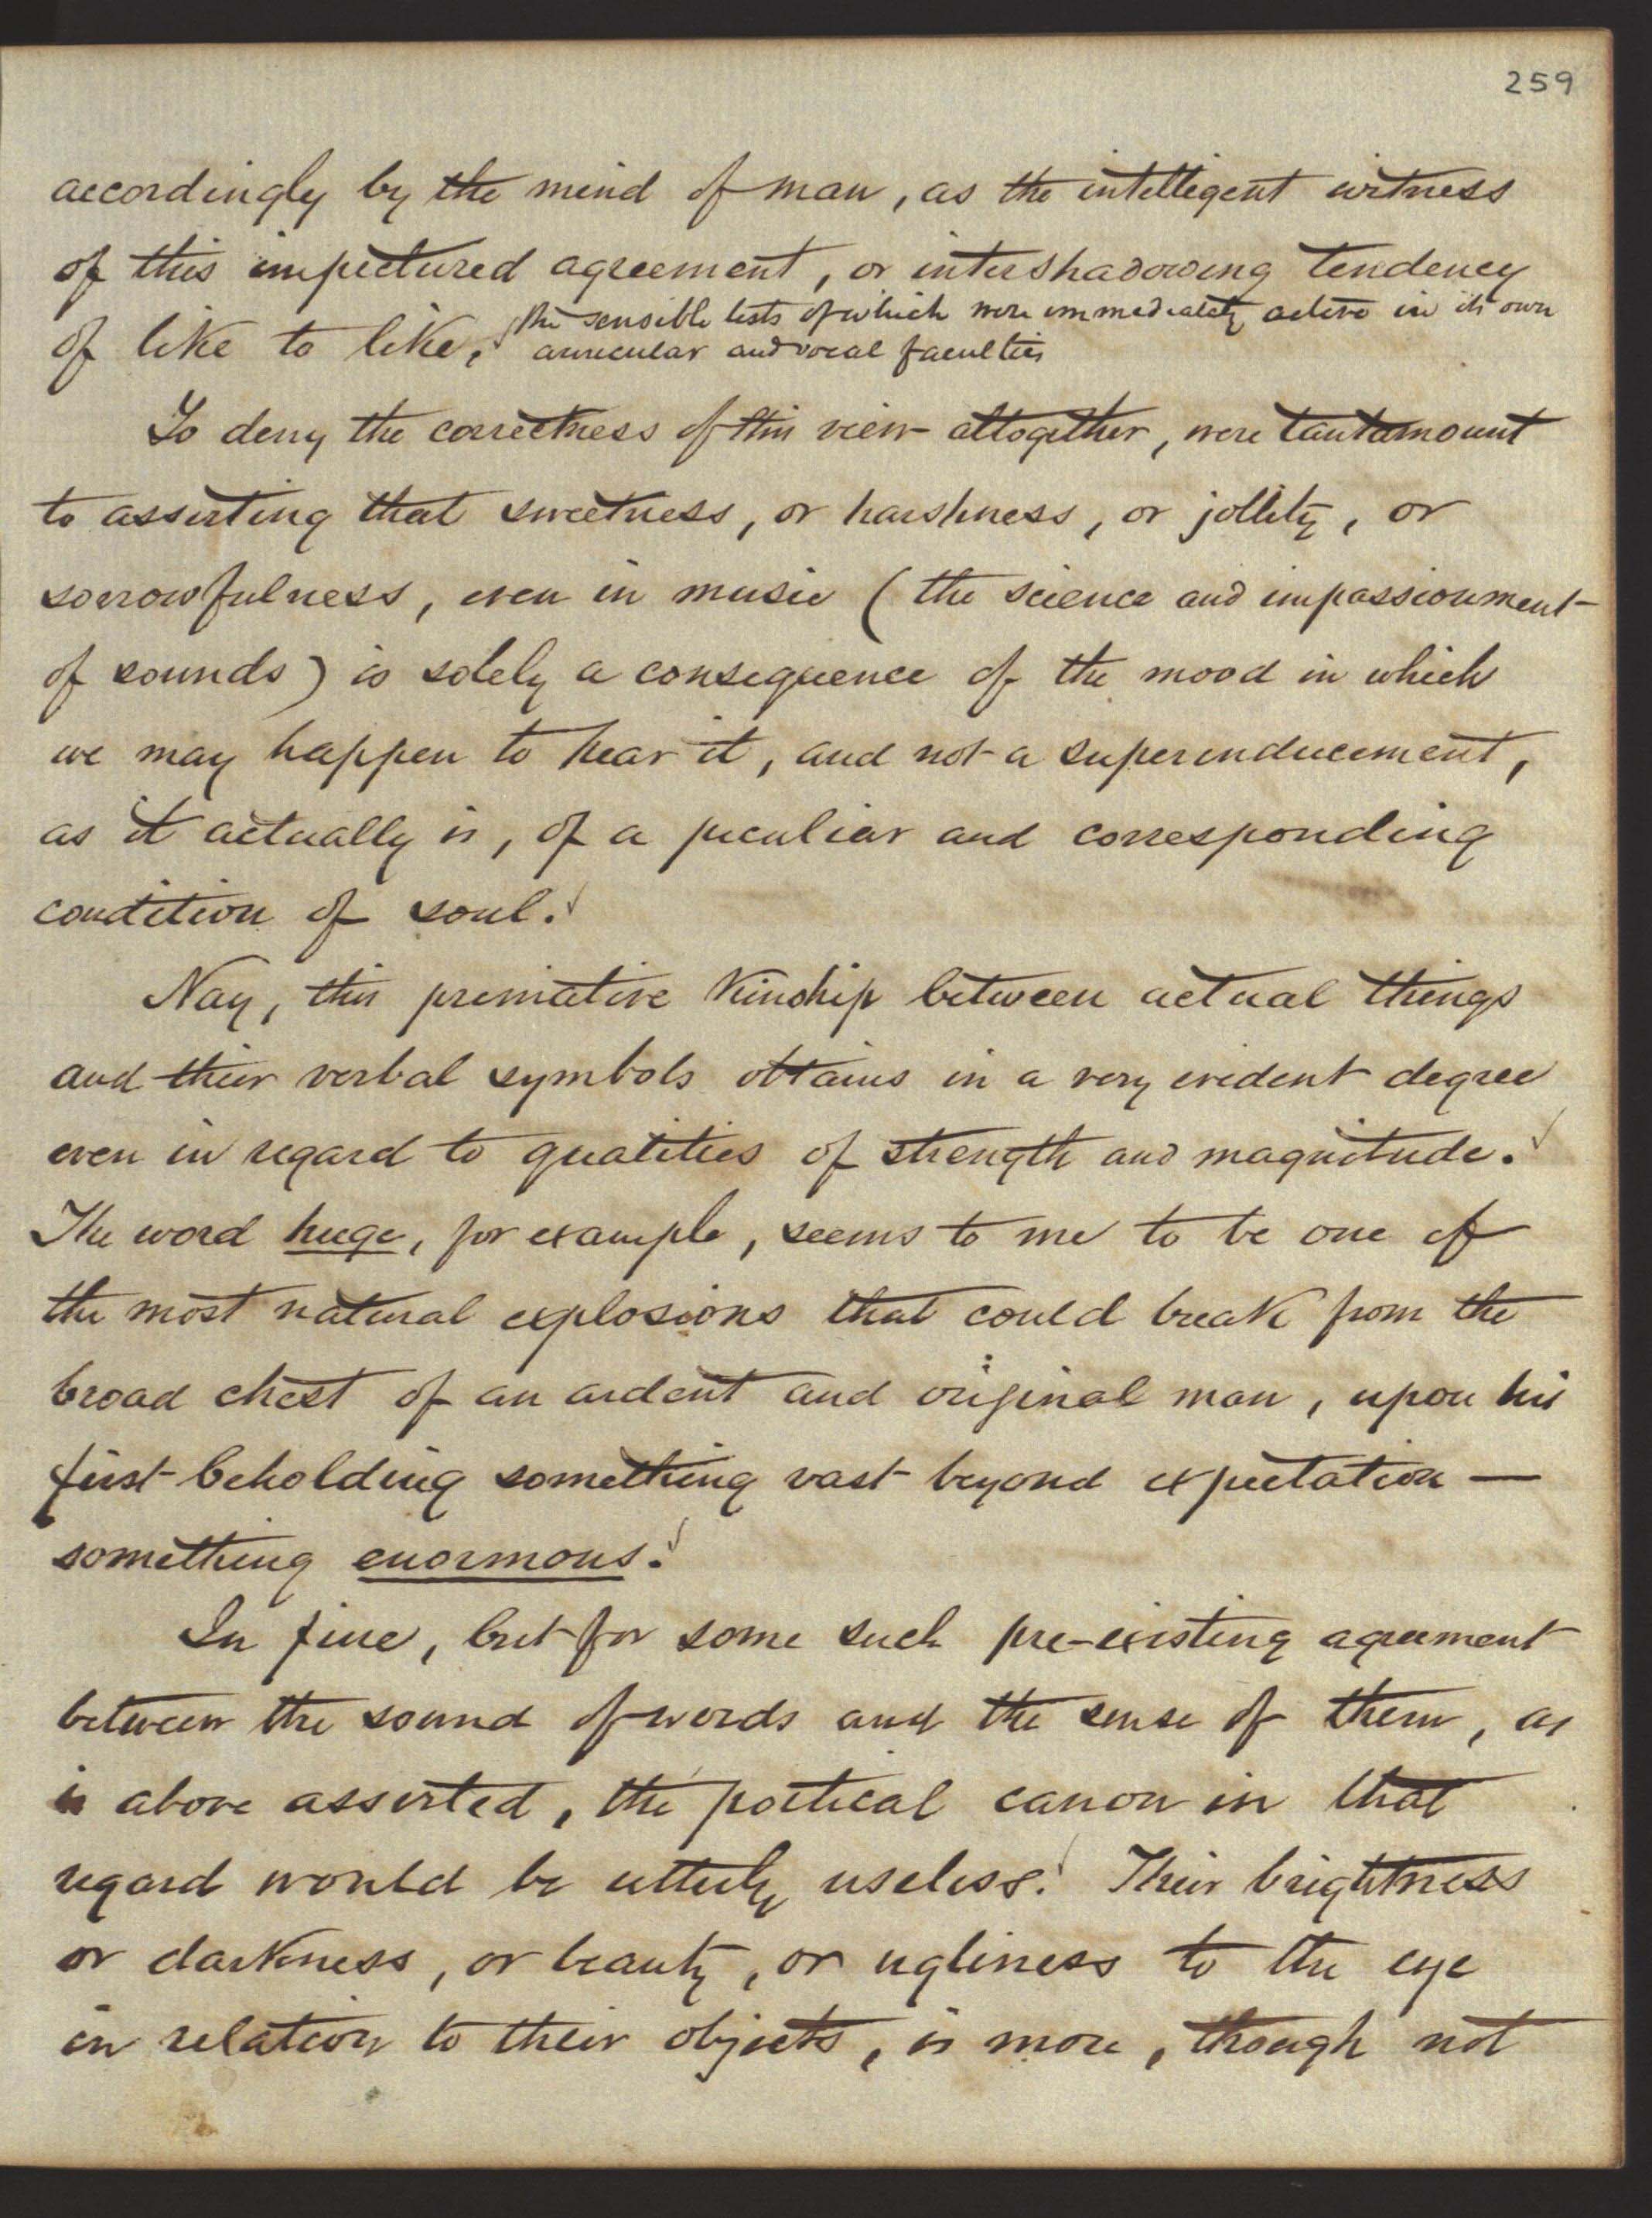 259
accordingly by the mind of man, as the intelligent witness
of this impictured agreement, or intershadowing tendency
the sensible tests of which were immediately active in its own
of like to like, auricular and vocal faculties
To deny the correctness of this view altogether, were tantamount
to asserting that sweetness, or harshness, or jollity, or
sorrowfulness, even in music (the science and impassionment
of sounds) is solely a consequence of the mood in which
we may happen to hear it, and not a superinducement,
as it actually is, of a peculiar and corresponding
condition of soul.
Nay, this primative Kinship between actual things
and their verbal symbols obtains in a very evident degree
even in regard to qualities of strength and magnitude.
The word huge, for example, seems to me to be one of
the most natural explosions that could break from the
broad chest of an ardent and original man, upon his
first beholding something vast beyond expectation —
something enormous.
In fine, but for some such pre-existing agreement
between the sound of words and the sense of them, as
is above asserted, the poetical canon in that
regard would be utterly useless. Their brightness
or darkness, or beauty, or ugliness to the eye
in relation to their objects, is more, though not